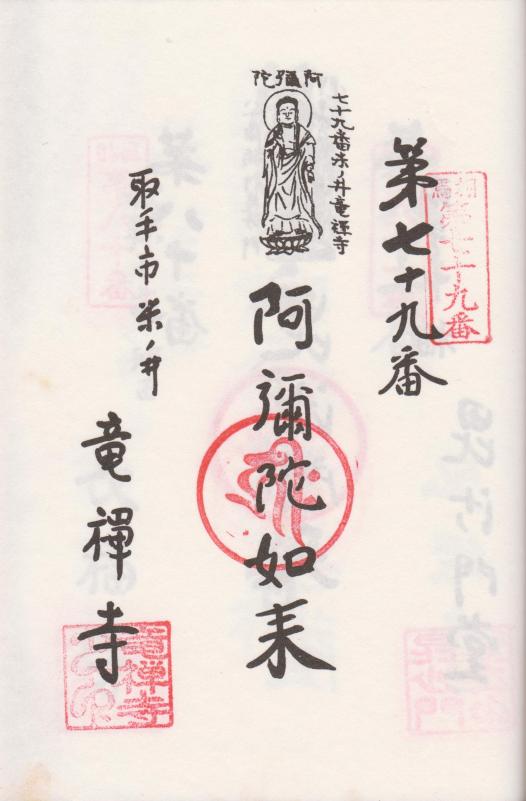 第七十九番
相馬
第七十九番
阿彌陀
七十九番米ノ井竜禅寺
阿彌陀如来
取手市米ノ井
竜禅寺
竜禅寺